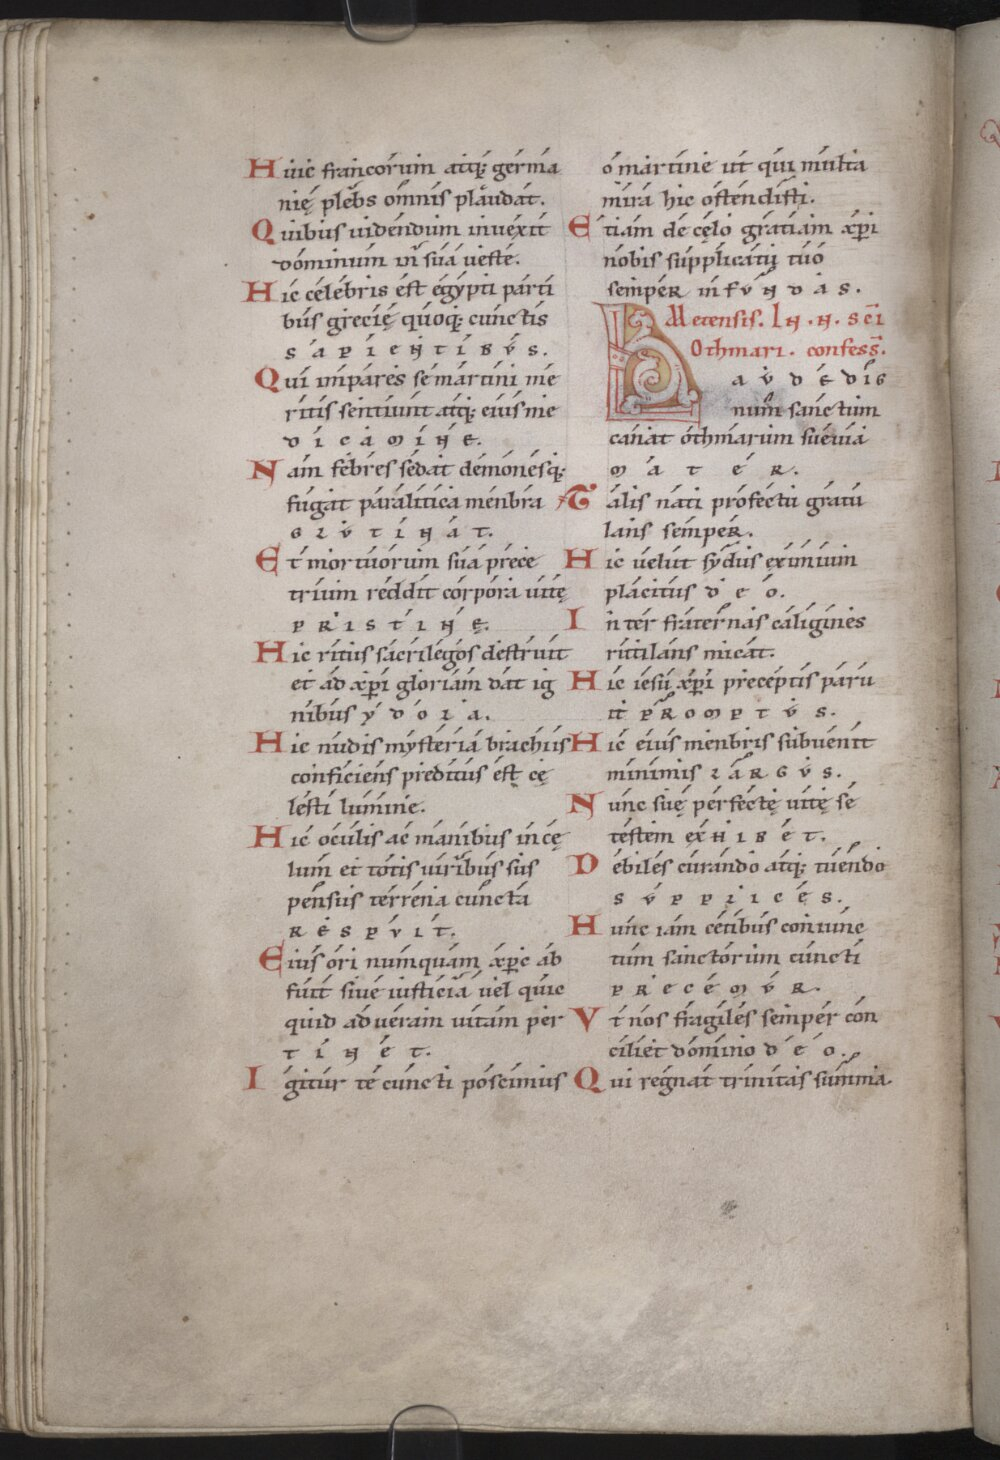 Huic francorum atq; germa
nię plebs omnis plaudat.
Quibus uidendum inuexit
dominum in sua ueste.
Hic celebris est egypti parti
bus grecię quoq; cunctis
SAPIENTIBUS.
Qui impares se martini me
ritis sentiunt atq; eius me
DICAMINE.
Nam febres sedat demonesq;
fugat paralitica menbra
GLUTINAT.
Et mortuorum sua prece
trium reddit corpora uitę
PRISTINĘ.
Hic ritus sacrilegos destruit
et ad xp̄i gloriam dat ig
nibus YDOLA.
Hic nudis mysteria brachiis
conficiens preditus est cę
lesti lumine.
Hic oculis ac manibus in cę
lum et totis uiribus sus
pensus terrena cuncta
RESPUIT.
Eius ori numquam xp̄c ab
fuit siue iusticia uel quic
quid ad ueram uitam per
TINET.
Igitur te cuncti poscimus
o martine ut qui multa
mira hic ostendisti.
Etiam de cęlo gratiam xp̄i
nobis supplicatu tuo
semper INFUNDAS.
Metensis. IN .N. SC̄I
Othmari. confess̄.
LAUDE DIG
num sanctum
canat othmarum sueuia
MATER.
Talis nati profectu gratu
lans semper.
Hic uelut sydus eximium
placitus DEO.
Inter fraternas caligines
rutilans micat.
Hic iesu xp̄i preceptis paru
it PROMPTUS.
Hic eius menbris subuenit
minimis LARGUS.
Nunc suę perfectę uitę se
testem EXHIBET.
Debiles curando atq; tuendo
SUPPLICES.
Hunc iam cetibus coniunc
tum sanctorum cuncti
PRECEMUR.
Vt nos fragiles semper con
ciliet domino DEO.
Qui regnat trinitas summa.